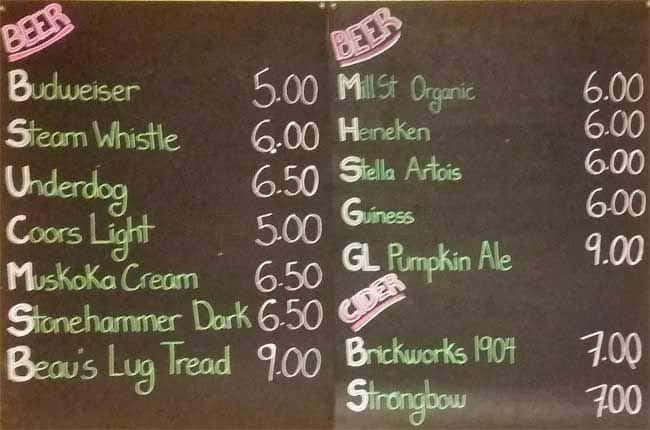 BEER
Budweiser 5.00
Steam Whistle 6.00
Underdog 6.50
Coors Light 5.00
Muskoka Cream 6.50
Stonehammer Dark 6.50
Beau's Lug Tread 9.00
BEER
Mill St Organic 6.00
Heineken 6.00
Stella Artois 6.00
Guiness 6.00
GL Pumpkin Ale 9.00
CIDER
Brickworks 1904 7.00
Strongbow 7.00